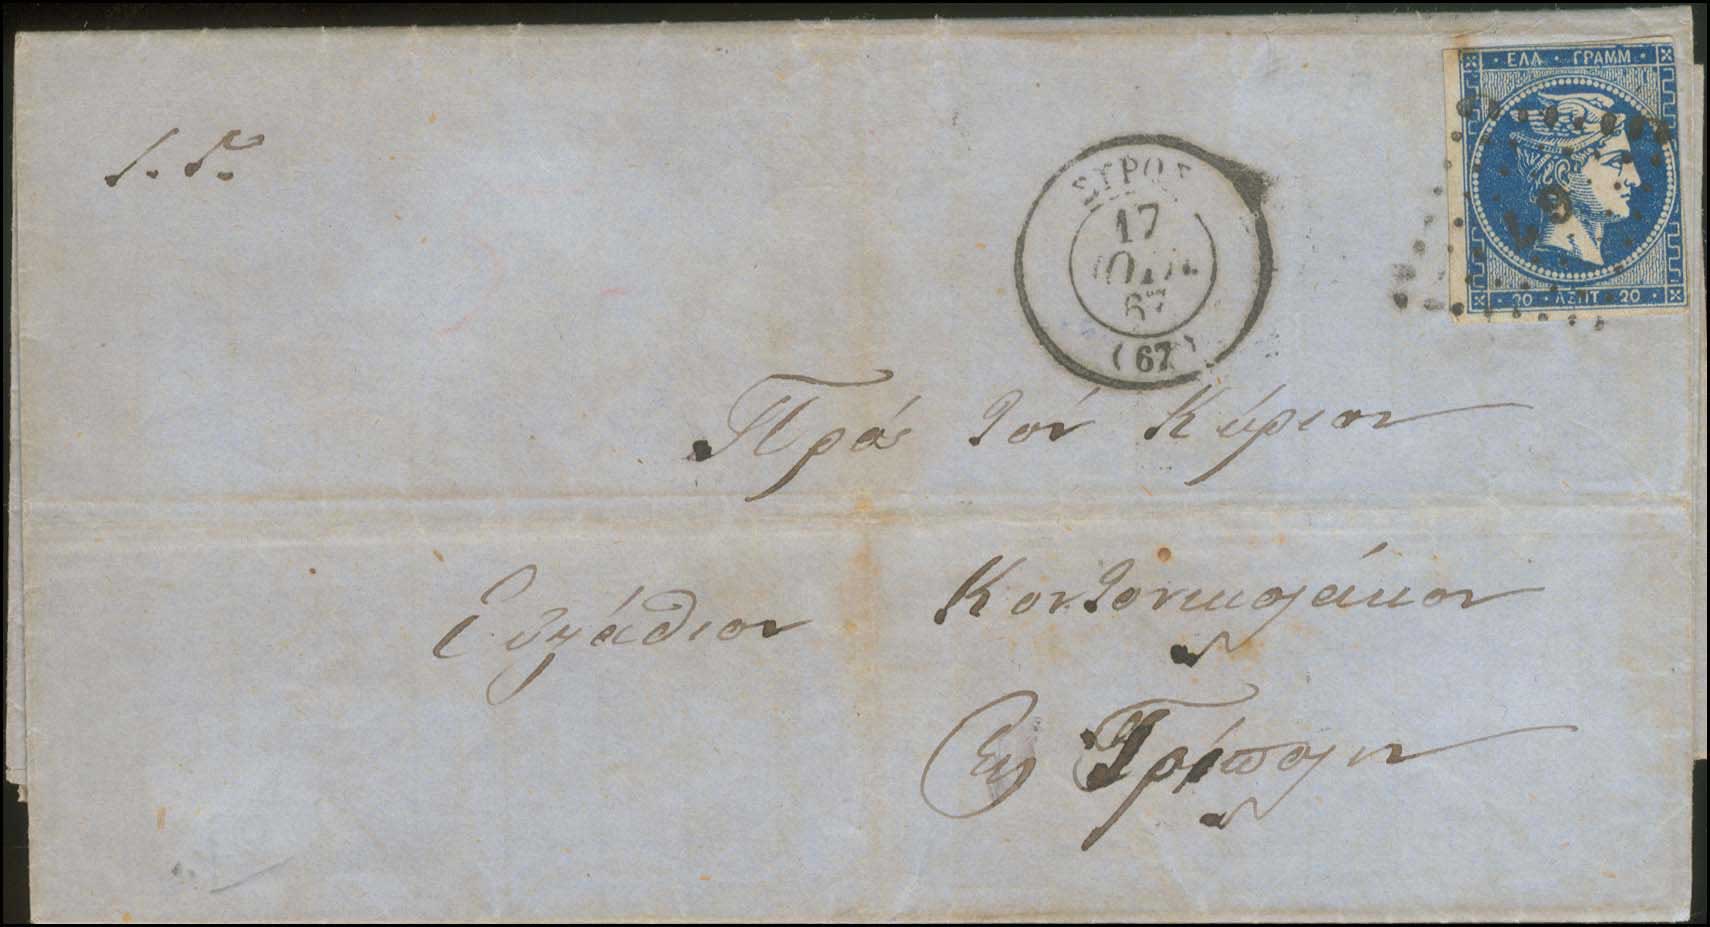 ΕΛΛ · ΓΡΑΜΜ
20 · ΛΕΠΤ · 20
67
ΣΥΡΟΣ
17
ΙΟΥΛ.
67
(67)
Πρὸς τὸν Κύριον
Εὐγάθιον Κοντονικολάκον
Εἰς Τρίπολιν